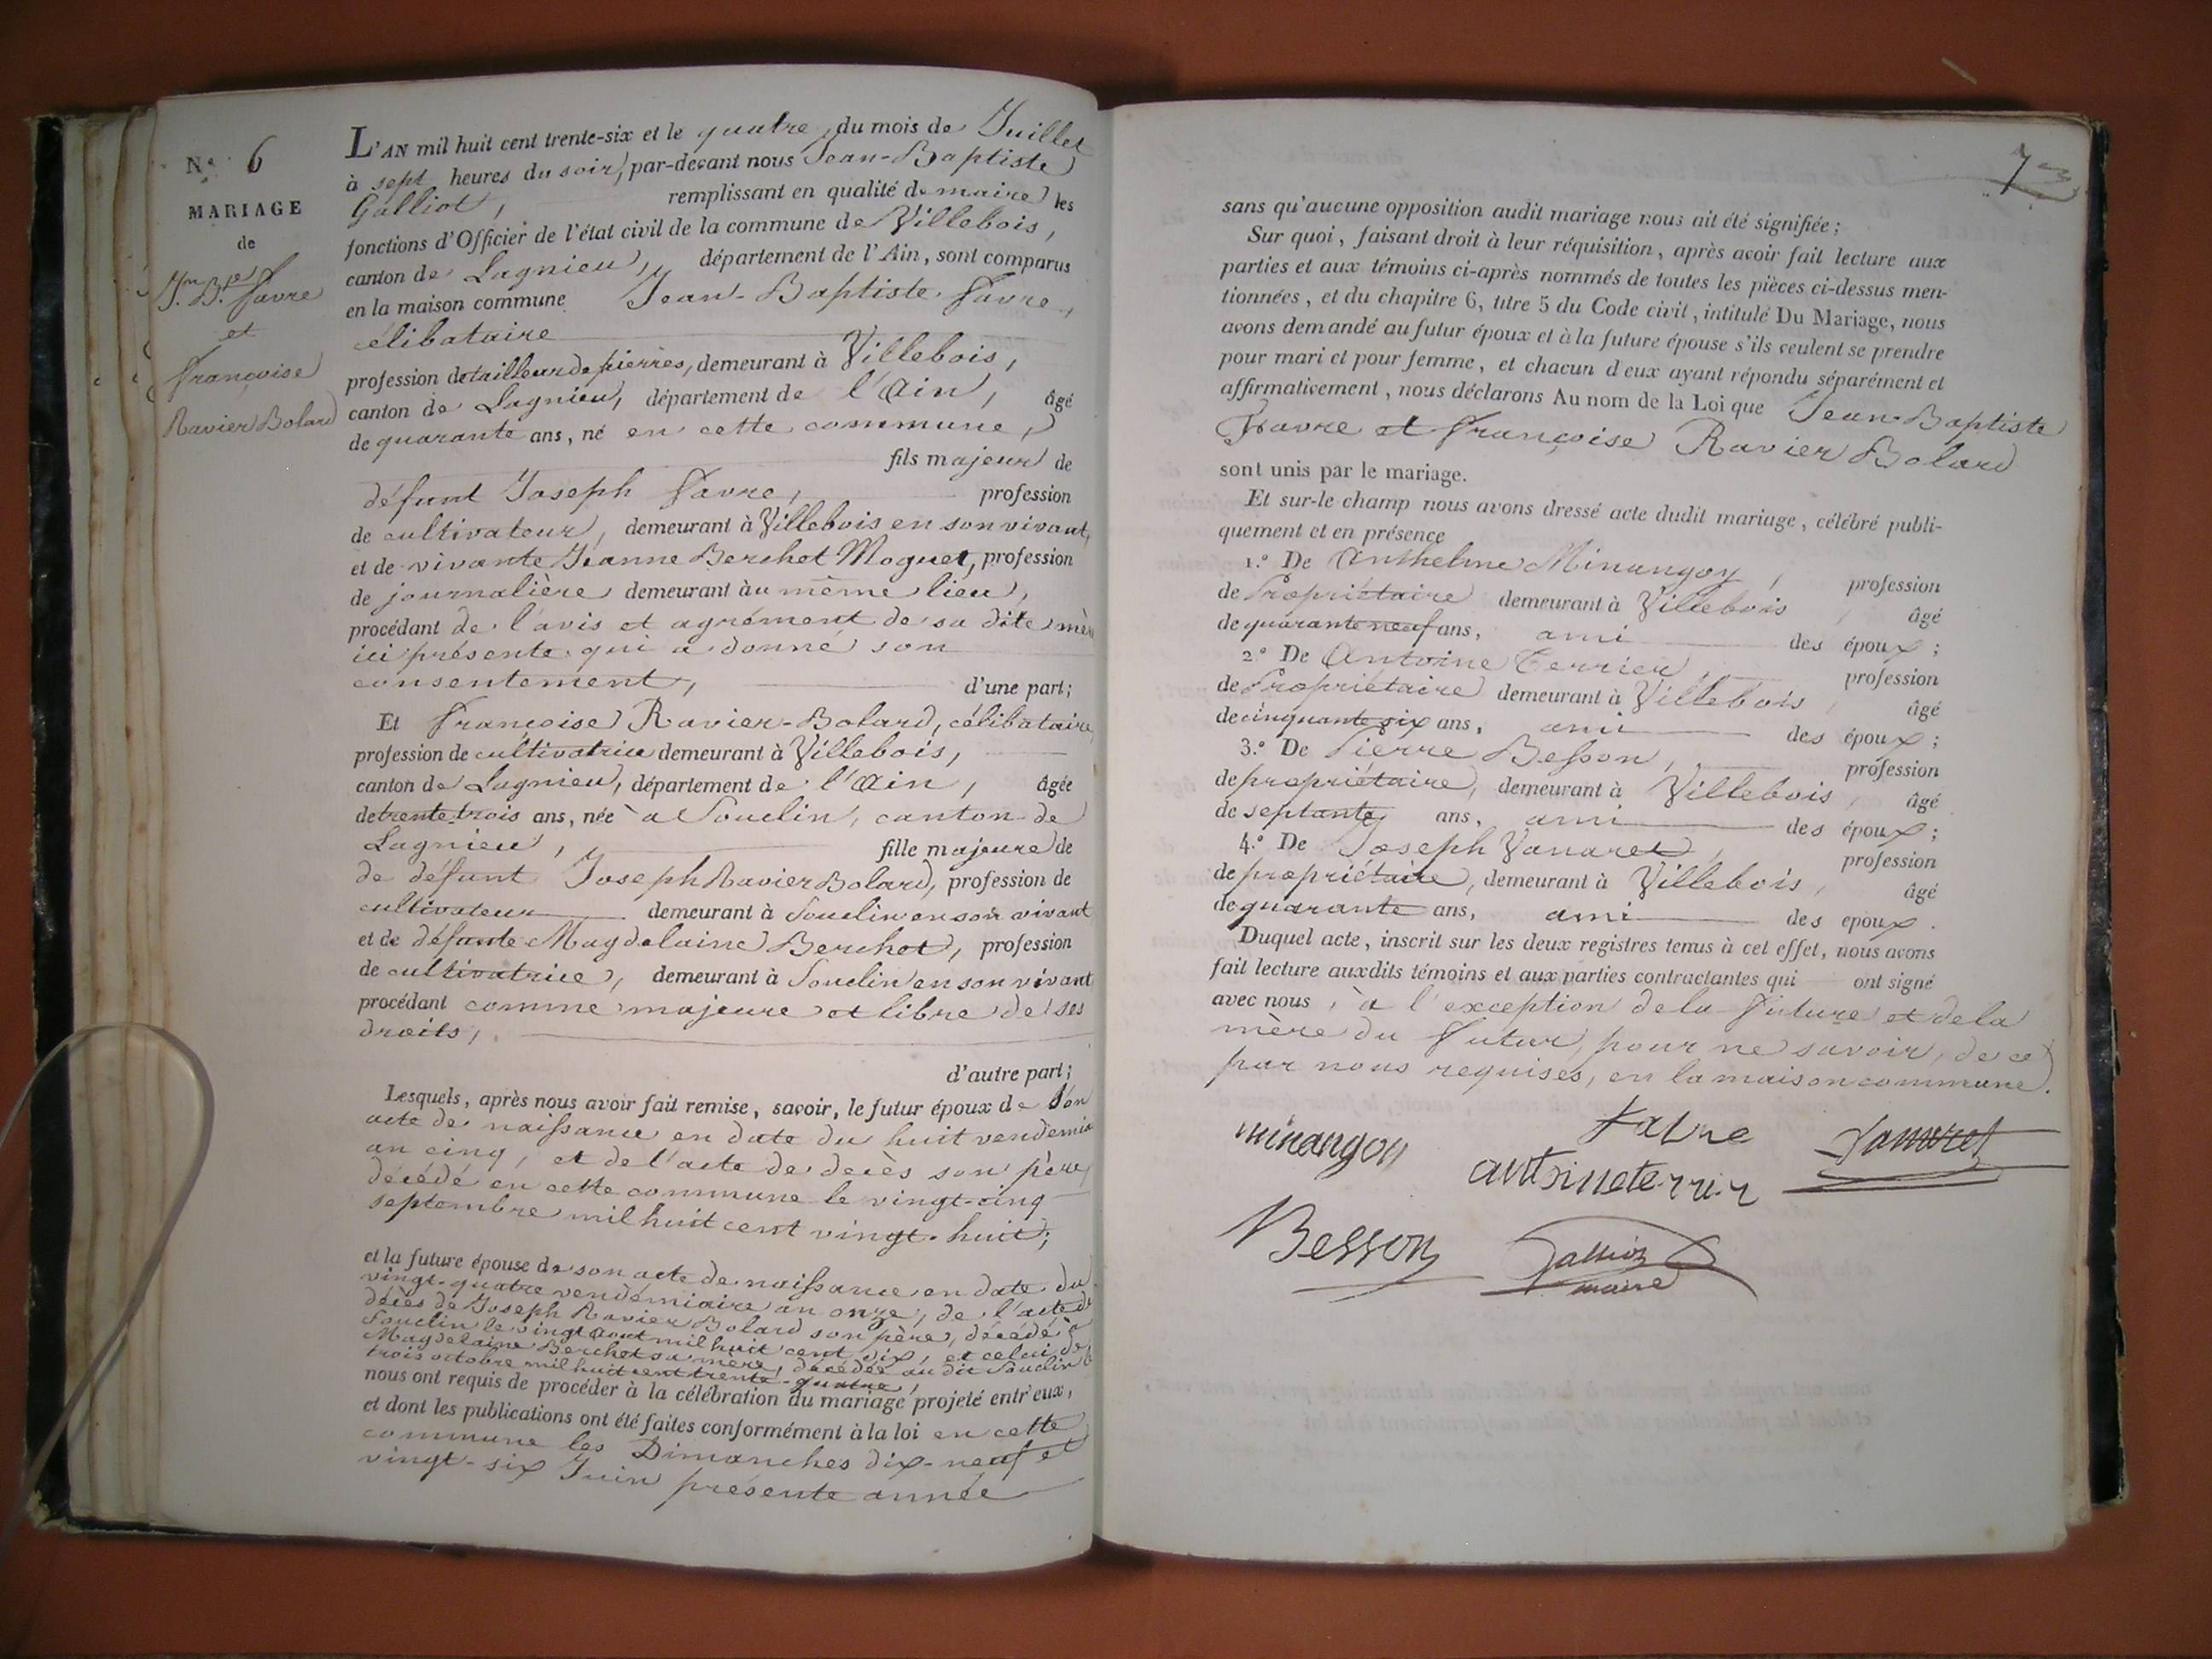 N.º 6
MARIAGE
de
Jn. Bte. Favre
et
Françoise
Ravier Bolard
L'AN mil huit cent trente-six et le quatre du mois de Juillet
à sept heures du soir, par-devant nous Jean-Baptiste
Galliot, remplissant en qualité de maire les
fonctions d'Officier de l'état civil de la commune de Villebois,
canton de Lagnieu, département de l'Ain, sont comparus
en la maison commune Jean-Baptiste Favre,
célibataire
profession de tailleur de pierres, demeurant à Villebois,
canton de Lagnieu, département de l'Ain, âgé
de quarante ans, né en cette commune,
fils majeur de
défunt Joseph Favre, profession
de cultivateur, demeurant à Villebois en son vivant,
et de vivante Jeanne Berchet Moguet, profession
de journalière demeurant au même lieu,
procédant de l'avis et agrément de sa dite mère
ici présente qui a donné son
consentement, d'une part;
Et Françoise Ravier-Bolard, célibataire,
profession de cultivatrice demeurant à Villebois,
canton de Lagnieu, département de l'Ain, âgée
de trente-trois ans, née à Souclin, canton de
Lagnieu, fille majeure de
de défunt Joseph Ravier Bolard, profession de
cultivateur demeurant à Souclin en son vivant
et de défunte Magdelaine Berchet, profession
de cultivatrice, demeurant à Souclin en son vivant
procédant comme majeure et libre de ses
droits,
d'autre part;
Lesquels, après nous avoir fait remise, savoir, le futur époux de son
acte de naissance en date du huit vendémia
an cinq, et de l'acte de décès son père,
décédé en cette commune le vingt-cinq
septembre mil huit cent vingt-huit;
et la future épouse de son acte de naissance en date du
vingt-quatre vendémiaire an onze, de l'acte de
décès de Joseph Ravier Bolard son père, décédé à
Souclin le vingt aout mil huit cent dix, et celui de
Magdelaine Berchet sa mère, décédée au dit Souclin le
trois octobre mil huit cent trente-quatre,
nous ont requis de procéder à la célébration du mariage projeté entr'eux,
et dont les publications ont été faites conformément à la loi en cette
commune les Dimanches dix-neuf et
vingt-six Juin présente année
7
sans qu'aucune opposition audit mariage nous ait été signifiée;
Sur quoi, faisant droit à leur réquisition, après avoir fait lecture aux
parties et aux témoins ci-après nommés de toutes les pièces ci-dessus men-
tionnées, et du chapitre 6, titre 5 du Code civil, intitulé Du Mariage, nous
avons demandé au futur époux et à la future épouse s'ils veulent se prendre
pour mari et pour femme, et chacun d'eux ayant répondu séparément et
affirmativement, nous déclarons Au nom de la Loi que Jean-Baptiste
Favre et Françoise Ravier Bolard
sont unis par le mariage.
Et sur-le champ nous avons dressé acte dudit mariage, célébré publi-
quement et en présence
1.º De Anthelme Minangoy, profession
de Propriétaire demeurant à Villebois, âgé
de quarante neuf ans, ami des époux;
2.º De Antoine Terrier, profession
de Propriétaire demeurant à Villebois, âgé
de cinquante six ans, ami des époux;
3.º De Pierre Besson, profession
de propriétaire, demeurant à Villebois, âgé
de septante ans, ami des époux;
4.º De Joseph Vanaret, profession
de propriétaire, demeurant à Villebois, âgé
de quarante ans, ami des epoux.
Duquel acte, inscrit sur les deux registres tenus à cet effet, nous avons
fait lecture auxdits témoins et aux parties contractantes qui ont signé
avec nous, à l'exception de la future et de la
mère du futur, pour ne savoir, de ce
par nous requises, en la maison commune.
minangoy favre Vanaret
antoine terrier
Besson Galliot
maire